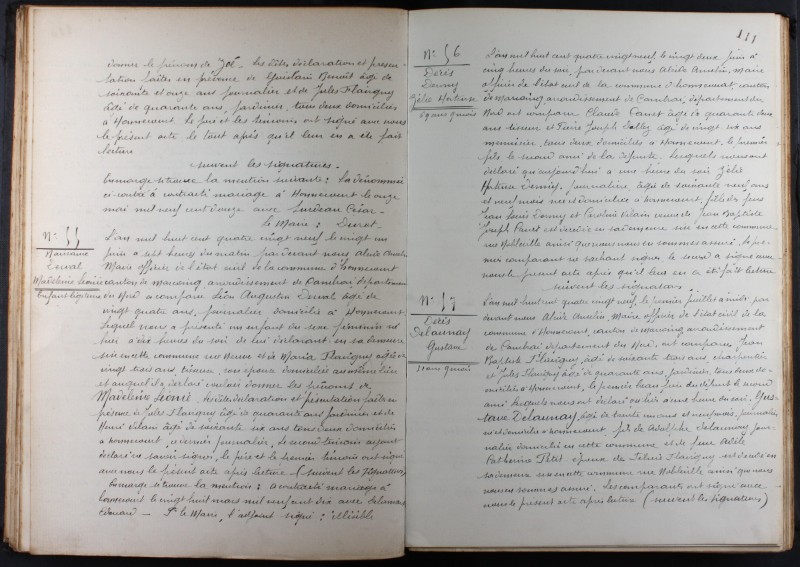 donner le prénoms de Zoé. Les dites déclaration et présen-
tation faites en présence de Ghislain Benoit âgé de
soixante et onze ans journalier et de Jules Flavigny
âgé de quarante ans, jardinier, tous deux domiciliés
à Honnecourt. Le père et les témoins ont signé avec nous
le présent acte le tout après qu'il leur en a été fait
lecture
suivent les signatures.
En marge se trouve la mention suivante: La dénommée
ci contre à contracté mariage à Honnecourt le onze
mai mil neuf cent douze avec César
le Maire: Duval
N° 55
Naissance
Duval
Madeleine Léonie
Enfant légitime
L'an mil huit cent quatre vingt neuf le vingt un
juin à sept heures du matin par devant nous Alcide Amelin
Maire officier de l'état civil de la commune d'Honnecourt
canton de Marcoing, arrondissement de Cambrai, département
du Nord a comparu Léon Augustin Duval âgé de
vingt quatre ans, journalier domicilié à Honnecourt.
Lequel nous a présenté un enfant du sexe féminin né
hier à dix heures du soir de lui déclarant en sa demeure
sise en cette commune rue Neuve et de Maria Flavigny âgée de
vingt trois ans, son épouse domiciliée avec lui
et auquel il a déclaré vouloir donner les prénoms de
Madeleine Léonie. déclaration et présentation faites en
présence de Jules Flavigny âgé de quarante ans jardinier et de
Henri Vilain âgé de soixante six ans tous deux domiciliés
à Honnecourt, dernier journalier, le second témoin ayant
déclaré ne savoir signer, le père et le premier témoin ont signé
avec nous le présent acte après lecture (suivent les signatures)
En marge se trouve la mention: a contracté mariage à
Honnecourt le vingt huit mars mil neuf cent dix avec Delannoy
Edouard — Pr le Maire, l'adjoint signé: illisible
111
N° 56
Décès
Denny
Zélie Hortense
69 ans 9 mois
L'an mil huit cent quatre vingt neuf, le vingt deux juin à
cinq heures du soir, par devant nous Alcide Amelin, Maire
officier de l'état civil de la commune d'Honnecourt canton
de Marcoing arrondissement de Cambrai, département du
Nord ont comparu Claude Canet âgé de quarante deux
ans tisseur et Pierre Joseph âgé de vingt six ans
menuisier, tous deux domiciliés à Honnecourt, le premier
fils le second ami de la défunte. Lesquels nous ont
déclaré qu'aujourd'hui à une heure du soir Zélie
Hortense Denny, journalière, âgée de soixante neuf ans
et neuf mois née et domiciliée à Honnecourt, fille des feus
Jean Louis Denny et Caroline Vilain veuve de Jean Baptiste
Joseph Canet est décédée en sa demeure sise en cette commune
rue Nobleville ainsi que nous nous en sommes assuré. Le pre-
mier comparant ne sachant signer, le second a signé avec
nous le présent acte après qu'il leur en a été fait lecture
suivent les signatures
N° 57
Décès
Delaunay
Gustave
31 ans 9 mois
L'an mil huit cent quatre vingt neuf, le premier juillet à midi par
devant nous Alcide Amelin Maire officier de l'état civil de la
commune d'Honnecourt, canton de Marcoing arrondissement
de Cambrai département du Nord, ont comparu Jean
Baptiste Flavigny, âgé de soixante trois ans, charpentier
et Jules Flavigny âgé de quarante ans, jardinier, tous deux do-
miciliés à Honnecourt, le premier beau père du défunt le second
ami. Lesquels nous ont déclaré qu'hier à une heure du soir, Gus-
tave Delaunay, âgé de trente un ans et neuf mois, journalier
né et domicilié à Honnecourt fils de Adolphe Delaunay jour-
nalier domicilié en cette commune et de feue Adèle
Catherine Petit époux de Flavigny est décédé en
sa demeure sise en cette commune rue Nobleville ainsi que nous
nous en sommes assuré. Les comparants ont signé avec
nous le présent acte après lecture (suivent les signatures)